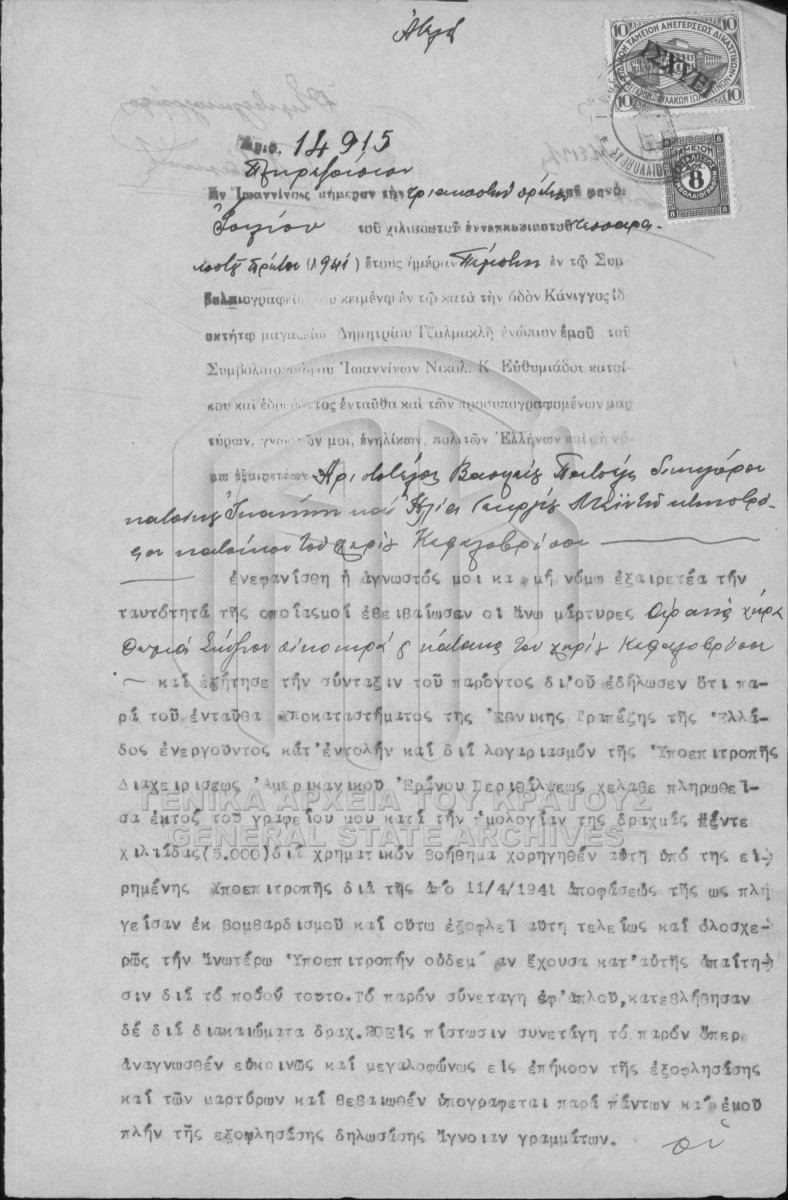 Ἁπλᾶ
10 10
ΤΑΜΕΙΟΝ ΑΝΕΓΕΡΣΕΩΣ ΔΙΚΑΣΤΙΚΩΝ
ΙΣΧΥΕΙ
10 10
ΤΑΜΕΙΟΝ
8
Ἀριθ. 14915
Ἐν Ἰωαννίνοις σήμερον τὴν τριακοστὴν πρώτην τοῦ μηνὸς
Ἰουλίου τοῦ χιλιοστοῦ ἐννεακοσιοστοῦ τεσσαρα-
κοστοῦ πρώτου (1941) ἔτους ἡμέραν Πέμπτην ἐν τῷ Συμ
βολαιογραφείῳ μου κειμένῳ ἐν τῷ κατὰ τὴν ὁδὸν Κάνιγγος ἰδ
οκτήτῳ μαγαζείῳ Δημητρίου Τζαλμακλῆ ἐνώπιον ἐμοῦ τοῦ
Συμβολαιογράφου Ἰωαννίνων Νικολ. Κ. Εὐθυμιάδου κατοί
κου καὶ ἑδρεύοντος ἐνταῦθα καὶ τῶν προσυπογραφομένων μαρ
τύρων, γνωστῶν μοι, ἐνηλίκων, πολιτῶν Ἑλλήνων καὶ μὴ νό
μῳ ἐξαιρετέων Ἀριστοτέλους Βασιλείου δικηγόρου
κατοίκου Ἰωαννίνων καὶ Ἠλία Γεωργίου κτηνοτρό-
φου κατοίκου τοῦ χωρίου Κεφαλοβρύσου
ἐνεφανίσθη ἡ ἄγνωστός μοι κα μὴ νόμῳ ἐξαιρετέα τὴν
ταυτότητά τῆς ὁποίας μοὶ ἐβεβαίωσαν οἱ ἄνω μάρτυρες χήρα
οἰκοκυρὰ κάτοικος τοῦ χωρίου Κεφαλοβρύσου
καὶ ἐζήτησε τὴν σύνταξιν τοῦ παρόντος δι'οὗ ἐδήλωσεν ὅτι πα-
ρὰ τοῦ ἐνταῦθα Ὑποκαταστήματος της Ἐθνικης Τραπέζης τῆς Ἑλλά-
δος ἐνεργοῦντος κατ'ἐντολήν καὶ διὰ λογαριασμόν τῆς Ὑποεπιτροπῆς
Διαχειρίσεως Ἀμερικανικοῦ Ἐράνου Περιθάλψεως χελαβε πληρωθεῖ-
σα ἐκτὸς τοῦ γραφείου μου κατὰ τὴν ὁμολογίαν της δραχμὰς Πέντε
χιλιάδας(5.000)διὰ χρηματικόν βοήθημα χορηγηθέν αὐτῇ ὑπό της εἰ-
ρημένης Ὑποεπιτροπῆς διὰ τῆς ἀπὸ 11/4/1941 ἀποφάσεώς τῆς ως πλη
γεῖσαν ἐκ βομβαρδισμοῦ καὶ οὕτω ἐξοφλεῖ αὐτη τελείως καὶ ὁλοσχε-
ρῶς τὴν ἀνωτέρω Ὑποεπιτροπήν οὐδεμ αν ἔχουσα κατ'αὐτῆς ἀπαίτη-
σιν διὰ τὸ ποσόν τουτο.Τὸ παρόν σύνεταγη ἐφ'ἁπλοῦ,κατεβλήθησαν
δὲ διὰ διακαιώματα δραχ.20Εἰς πίστωσιν συνετάγη τὸ παρόν ὅπερ
ἀναγνωσθέν εὐκρινῶς καὶ μεγαλοφώνως εἰς ἐπήκοον τῆς ἐξοφλησάσης
καὶ τῶν μαρτύρων καὶ βεβαιωθέν ὑπογραφεται παρὰ πάντων καὶ ἐμοῦ
πλήν τῆς ἐξοφλησάσης δηλωσάσης ἄγνοιαν γραμμάτων. οἱ
ΓΕΝΙΚΑ ΑΡΧΕΙΑ ΤΟΥ ΚΡΑΤΟΥΣ
GENERAL STATE ARCHIVES